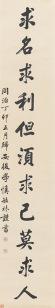 求名求利但須求己莫求人
同治丁卯五月歸安後學慎毓林謹書